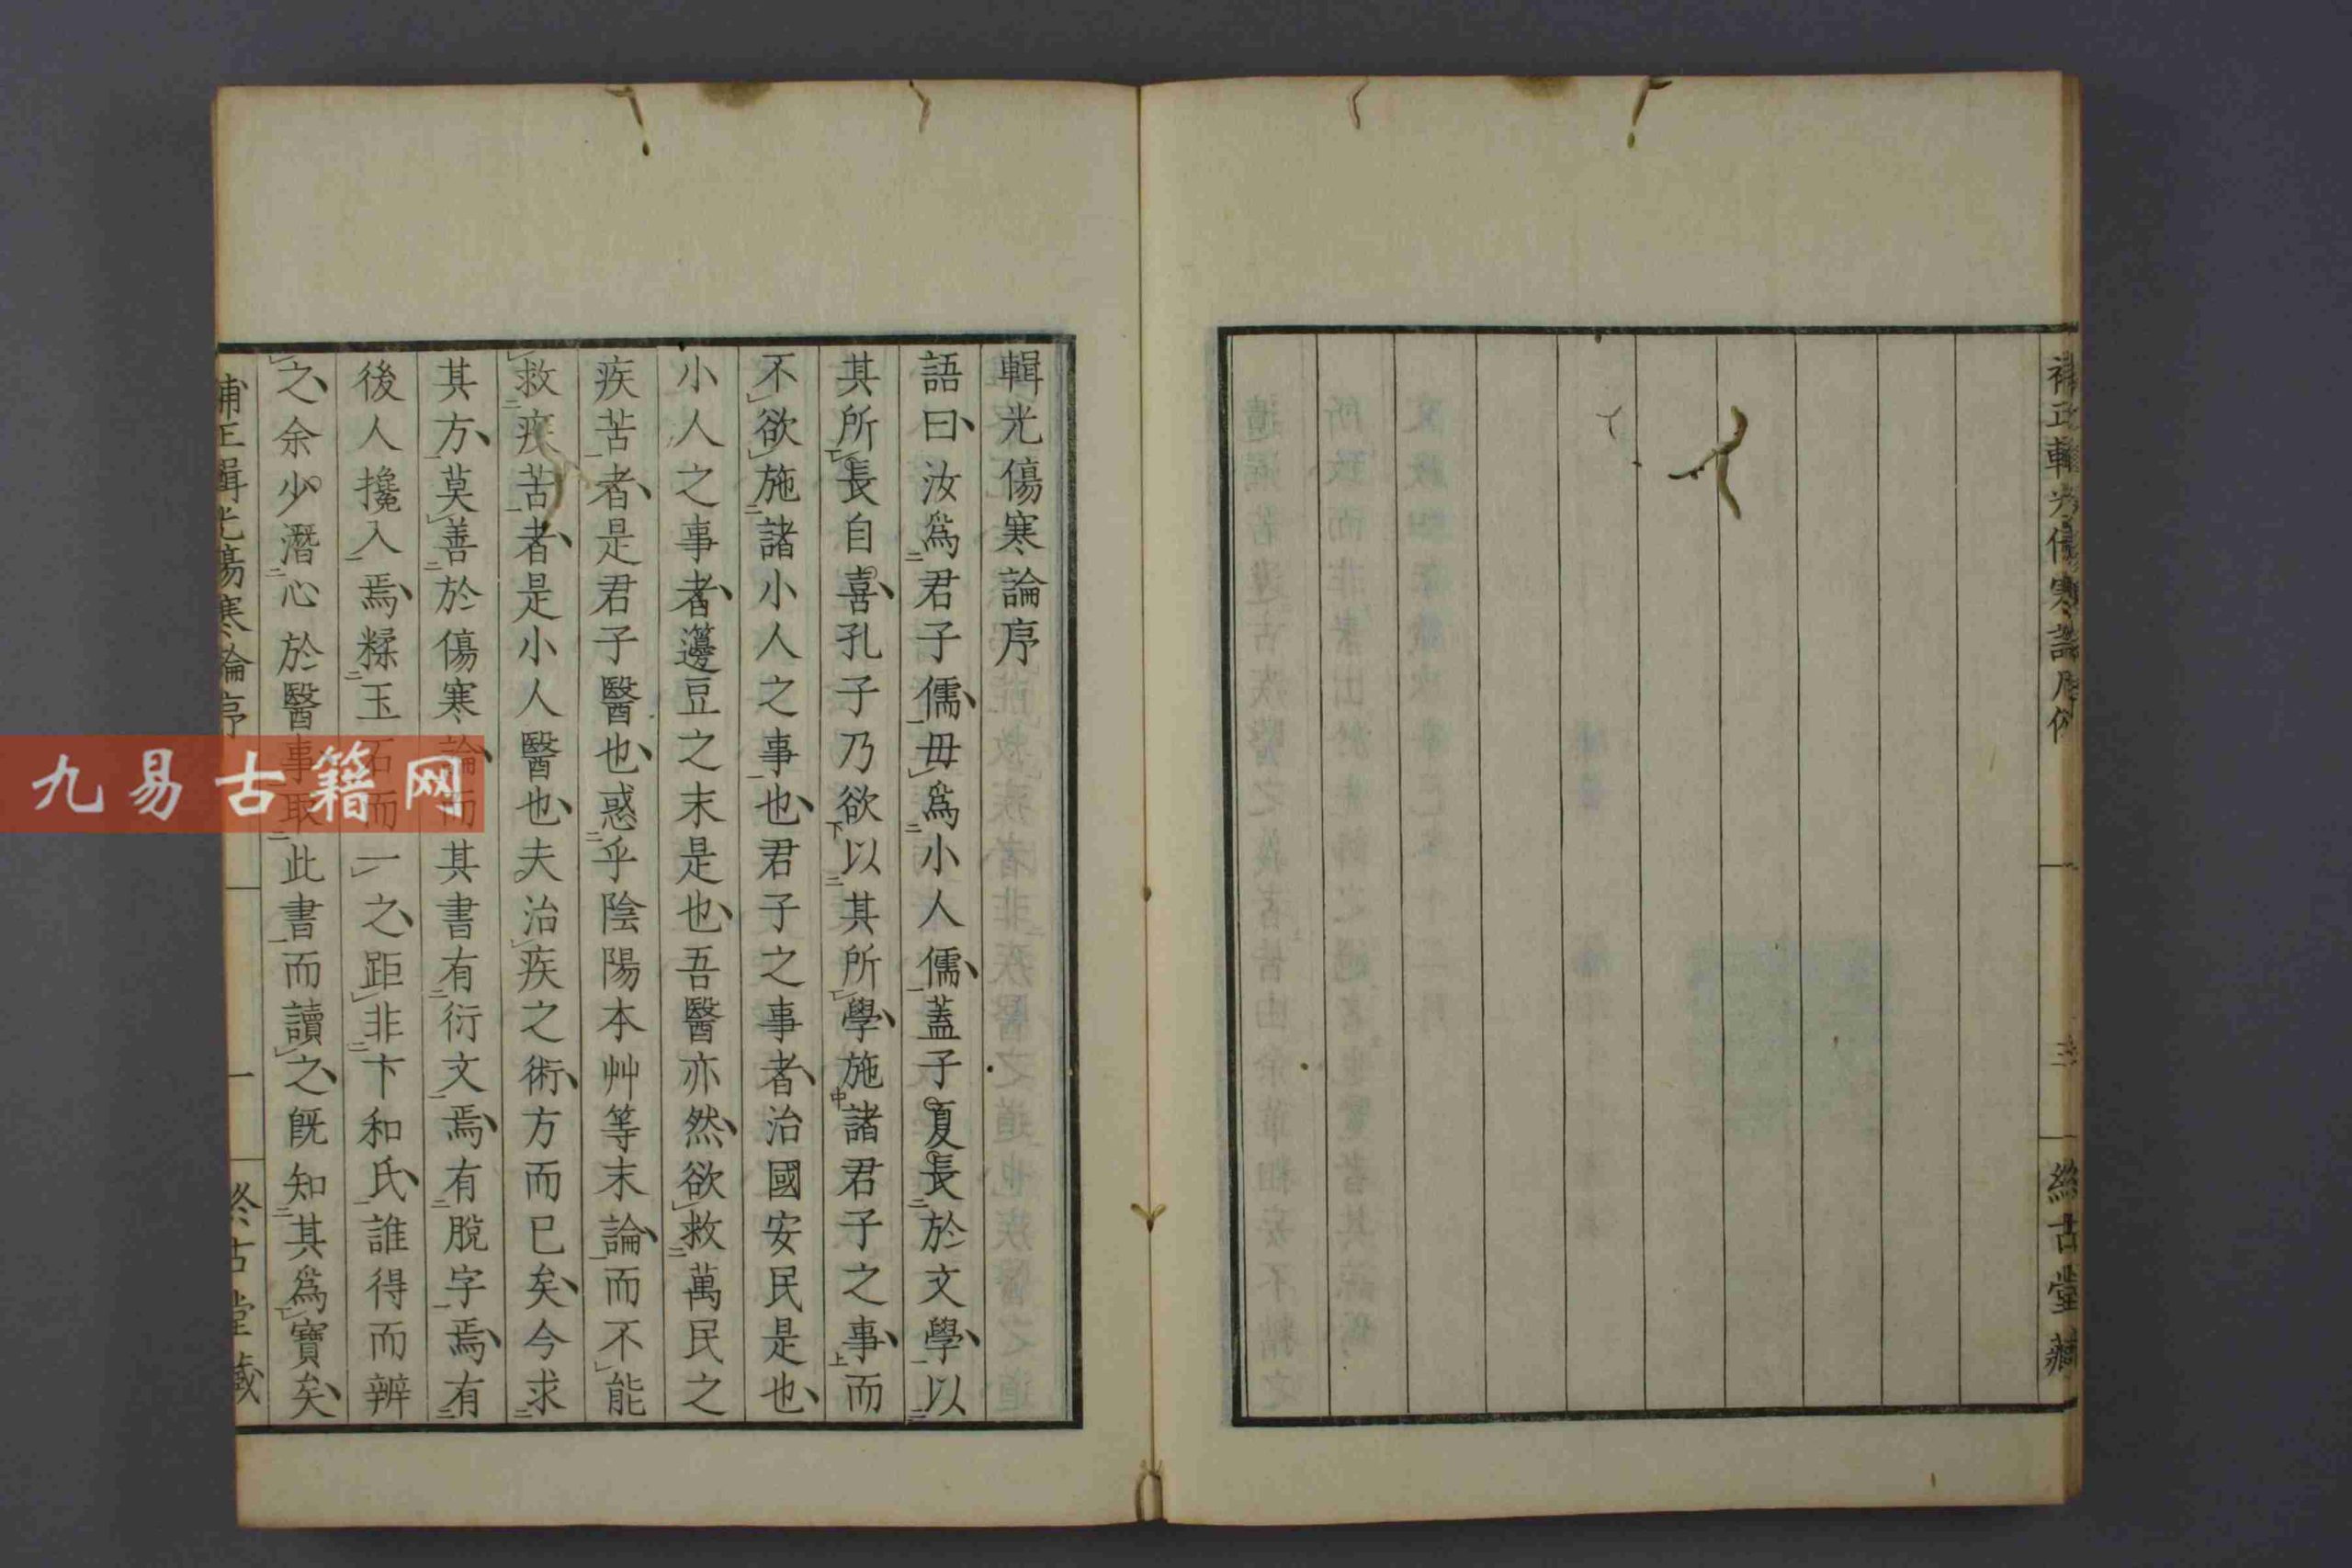 補正輯光傷寒論凡例
三
終古堂藏
輯光傷寒論序
語曰汝爲君子儒毋爲小人儒蓋子夏長於文學以
其所長自喜孔子乃欲以其所學施諸君子之事而
不欲施諸小人之事也君子之事者治國安民是也
小人之事者籩豆之末是也吾醫亦然欲救萬民之
疾苦者是君子醫也惑乎陰陽本艸等末論而不能
救疾苦者是小人醫也夫治疾之術方而已矣今求
其方莫善於傷寒論而其書有衍文焉有脫字焉有
後人攙入焉糅玉石而一之距非卞和氏誰得而辨
之余少潛心於醫事取此書而讀之既知其爲寶矣
補正輯光傷寒論序
一
終古堂藏
九易古籍网